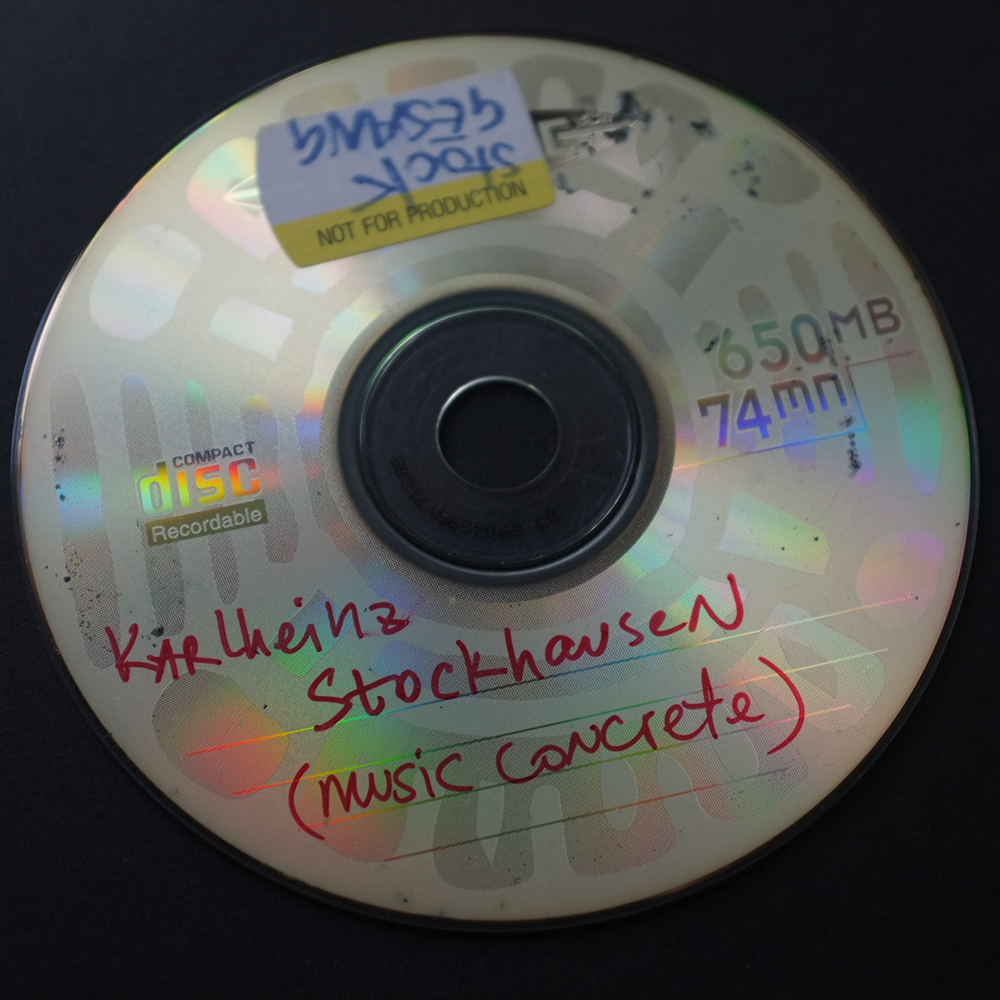 STOCK
GESANG
NOT FOR PRODUCTION
650MB
74mn
COMPACT
disc
Recordable
Karlheinz
Stockhausen
(music concrete)